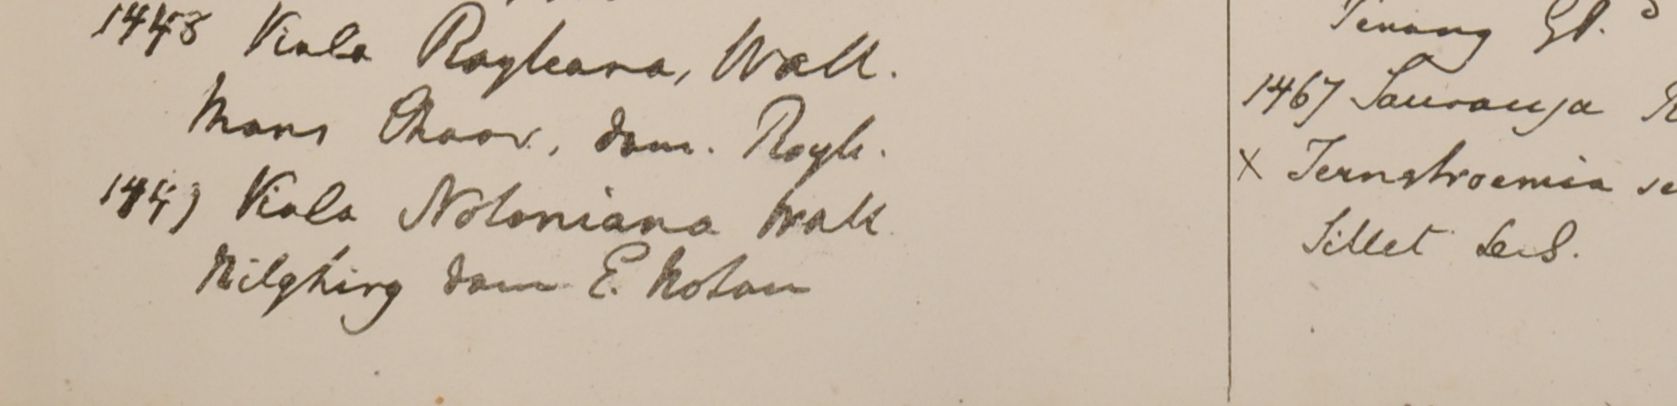 Viola Royleana, Wall.
Mons Chaor, dom. Royle.
Viola Notoniana Wall
Nilghirg dom E. Noton
Penang GP.
1467 Saurauja
X Ternstroemia se
Sillet